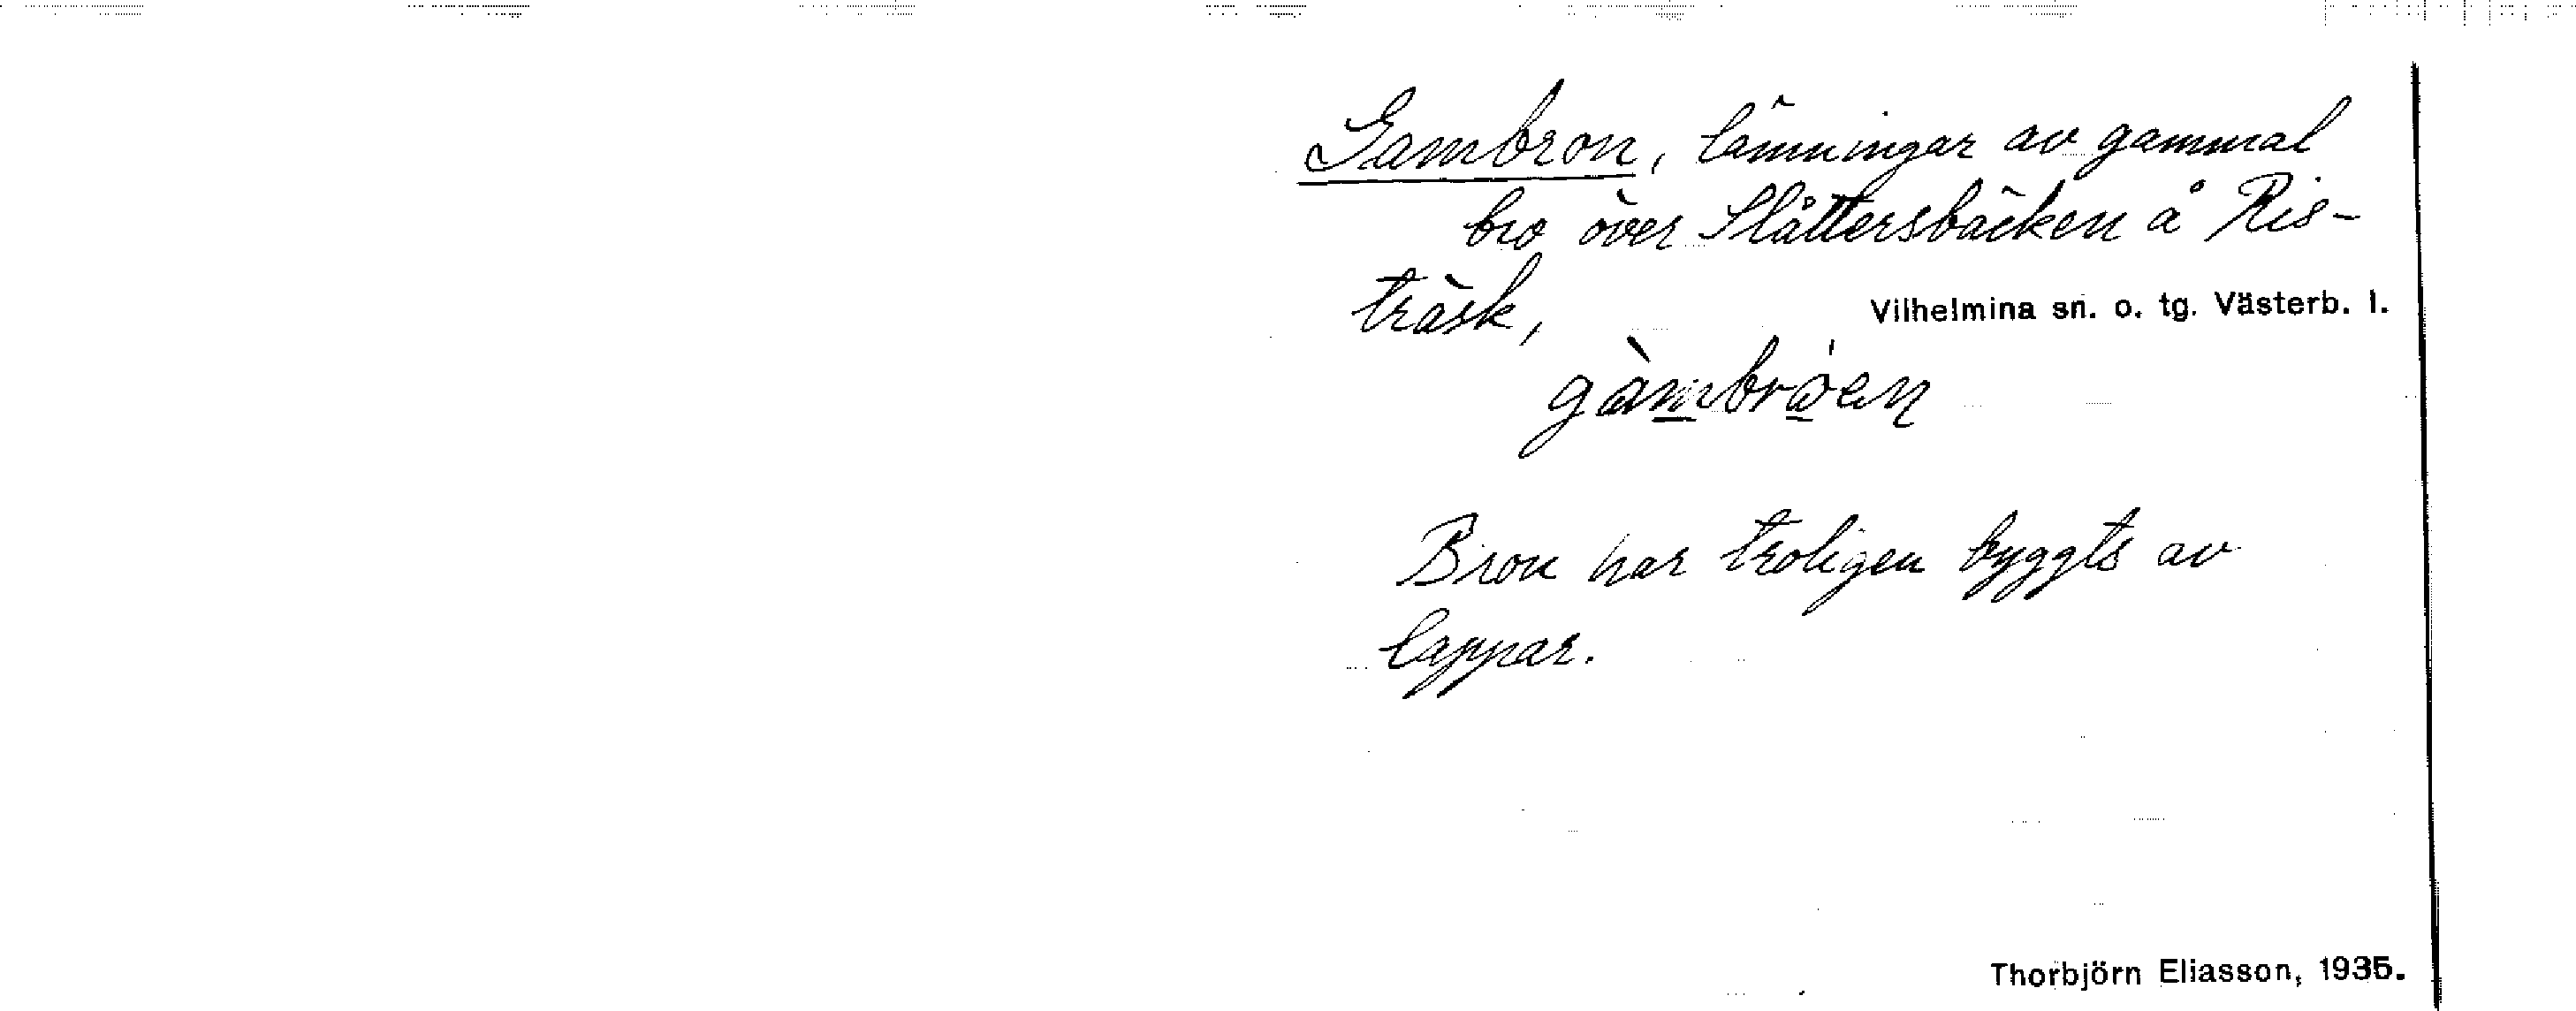 Gambron, lämningar av gammal
bro över Slåttersbäcken å Ris-
träsk,
Vilhelmina sn. o. tg. Västerb. l.
gàmbròen
Bron har troligen byggts av
lappar.
Thorbjörn Eliasson, 1935.